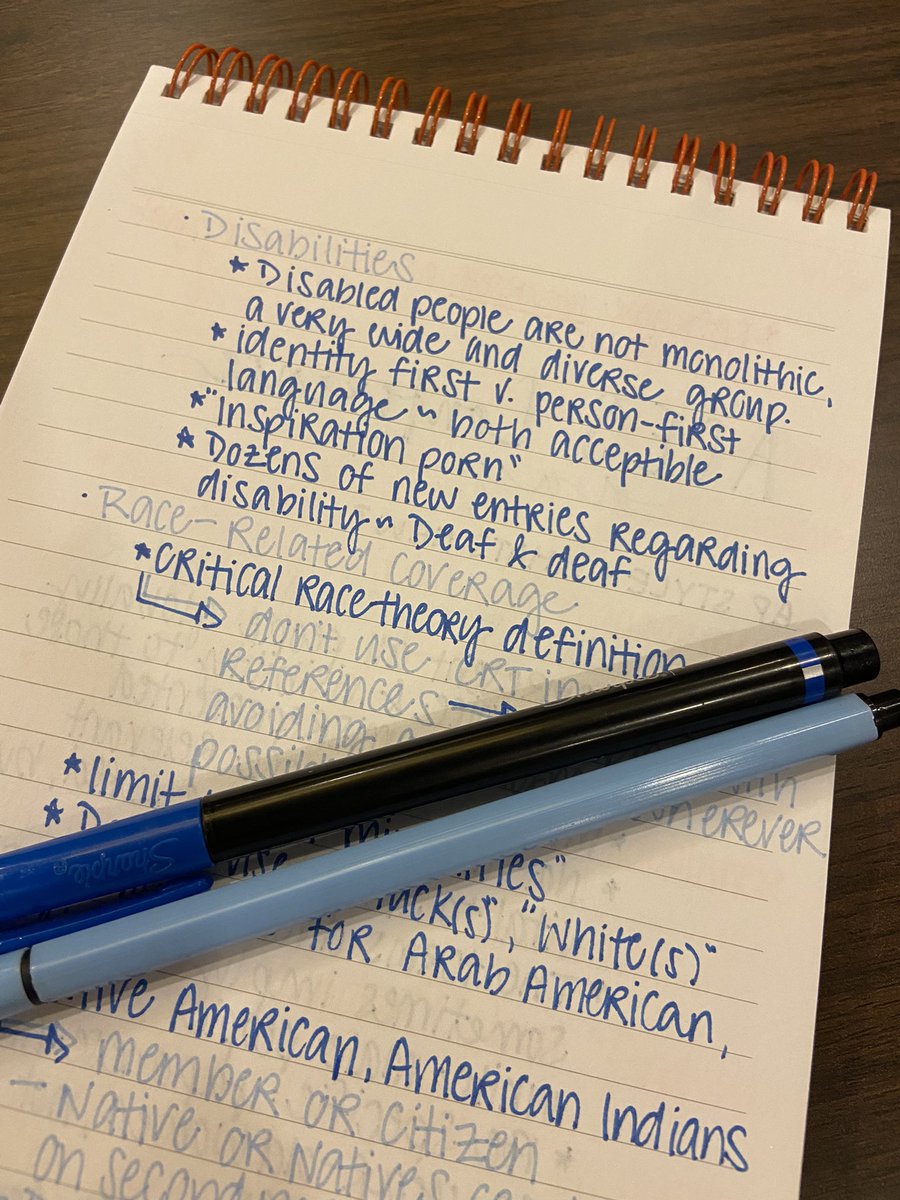 · Disabilities
* Disabled people are not monolithic,
a very wide and diverse group.
* identity first v. person-first
language ~ both acceptible
* "Inspiration porn"
* Dozens of new entries regarding
disability ~ Deaf & deaf
· Race-Related coverage
* critical Race theory definition
don't use CRT in
References
avoiding
possibl
* limit
*
Sharpie
"
(s)", "White(s)"
for Arab American,
American, American Indians
member or citizen
- Native or Natives
on second